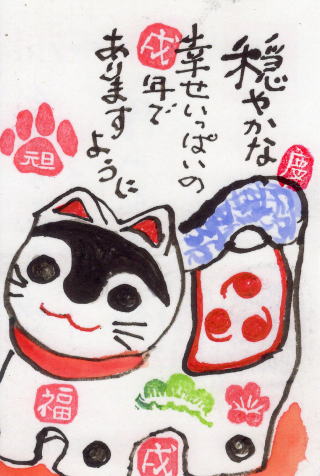 穏やかな
幸せいっぱいの
戌年で
あります
ように
慶
元旦
福
戌